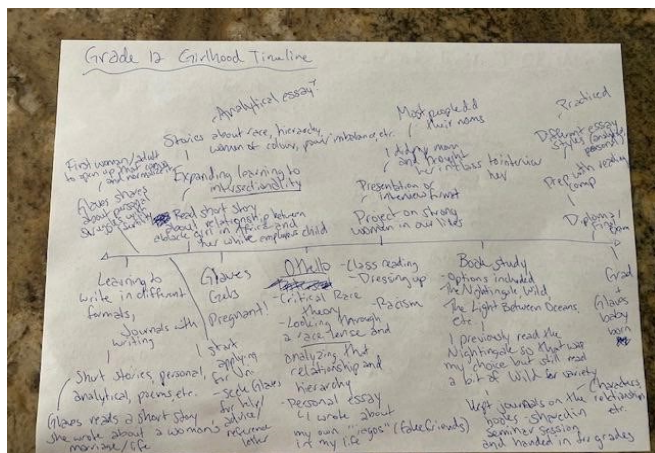 Grade 12 Girlhood Timeline
Analytical essay
Stories about race, hierarchy,
women of colour, power imbalance, etc.
Expanding learning to
intersectionality
Read short story
about relationship between
a black girl in Africa and
her white employers child
First woman/adult
to open up that
and normalize
Glaves shares
about personal
struggles with
Most people did
their moms
I did my mom
and brought
her in class to interview
her
Presentation or
interview format
Project on strong
women in our lives
Practiced
Different essay
styles (analytical,
personal)
Prep with reading
comp
Diploma/
Final Exam
Learning to
write in different
formats,
Journals with
writing
Short stories, personal,
analytical, poems etc.
Glaves reads a short story
she wrote about a woman's
marriage/life
Glaves
Gets
Pregnant!
I start
applying
for Uni
- Seek Glaves
for help/
advice/
reference
letter
Othello
- Class reading
- Dressing up
- Racism
- Critical Race
theory
- Looking through
a race lense and
analyzing that
relationship and
hierarchy
- Personal essay
I wrote about
my own "iagos" (fake friends)
in my life
Book study
- Options included
The Nightingale, Wild,
The Light Between Oceans,
etc.
I previously read the
Nightingale so that was
my choice but still read
a bit of Wild for variety
Kept journals on the
books - shared in
seminar session
and handed in for grades
Characters,
relationships
etc.
Grad
+
Glaves
baby
born